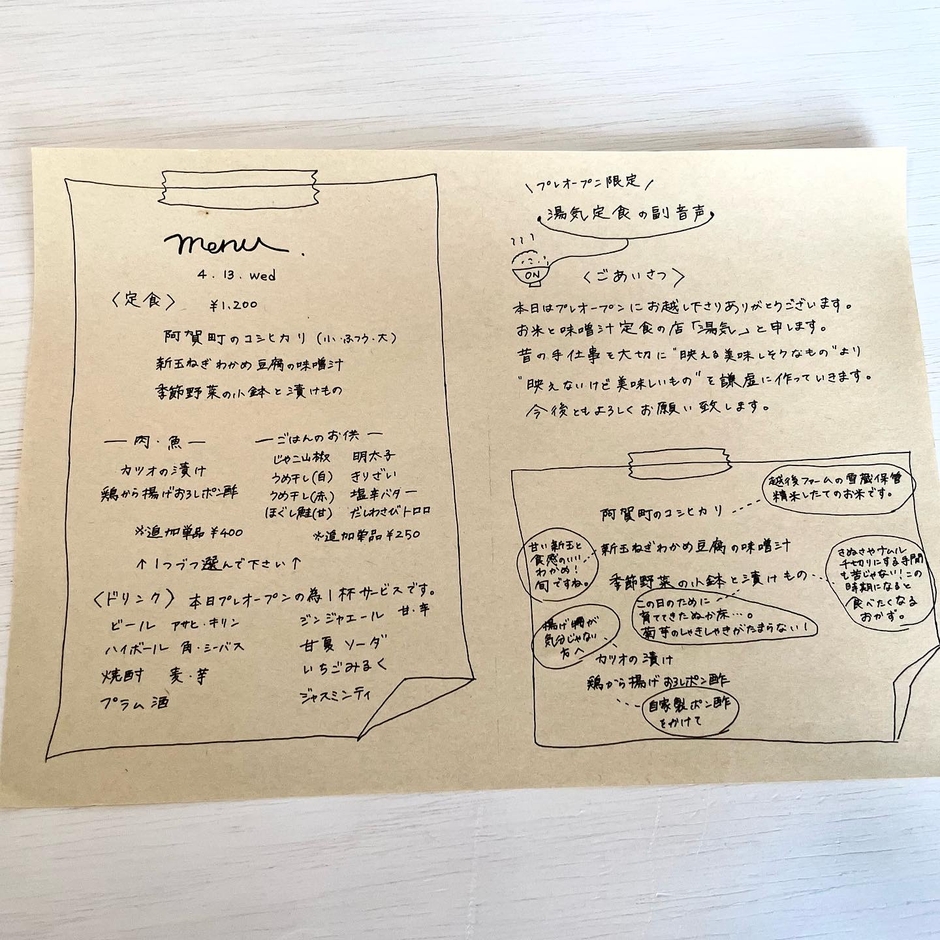 menu.
4.13.wed
〈定食〉 ¥1,200
阿賀町のコシヒカリ (小・ふつう・大)
新玉ねぎわかめ豆腐の味噌汁
季節野菜の小鉢と漬けもの
ー肉・魚ー
カツオの漬け
鶏から揚げおろしポン酢
※追加単品 ¥400
ーごはんのお供ー
じゃこ山椒 明太子
うめ干し(白) きりざい
うめ干し(赤) 塩辛バター
ほぐし鮭(甘) だしわさびトロロ
※追加単品 ¥250
↑1つづつ選んで下さい↑
〈ドリンク〉 本日プレオープンの為1杯サービスです。
ビール アサヒ・キリン
ハイボール 角・シーバス
焼酎 麦・芋
プラム酒
ジンジャエール 甘・辛
甘夏ソーダ
いちごみるく
ジャスミンティ
\プレオープン限定/
湯気定食の副音声
ON
〈ごあいさつ〉
本日はプレオープンにお越し下さりありがとうございます。
お米と味噌汁定食の店「湯気」と申します。
昔の手仕事を大切に"映える美味しそうなもの"より
"映えないけど美味しいもの"を謙虚に作っていきます。
今後ともよろしくお願い致します。
阿賀町のコシヒカリ
越後ファームの雪蔵保管
精米したてのお米です。
新玉ねぎわかめ豆腐の味噌汁
甘い新玉と
食感のいい
わかめ!
旬ですね。
季節野菜の小鉢と漬けもの
きぬさやナムル
千切りにする手間
も苦じゃない!この
時期になると
食べたくなる
おかず。
この日のために
育ててきたぬか床…。
菊芋のしゃきしゃきがたまらない!
カツオの漬け
揚げ物が
気分じゃない
方へ
鶏から揚げおろしポン酢
自家製ポン酢
をかけて